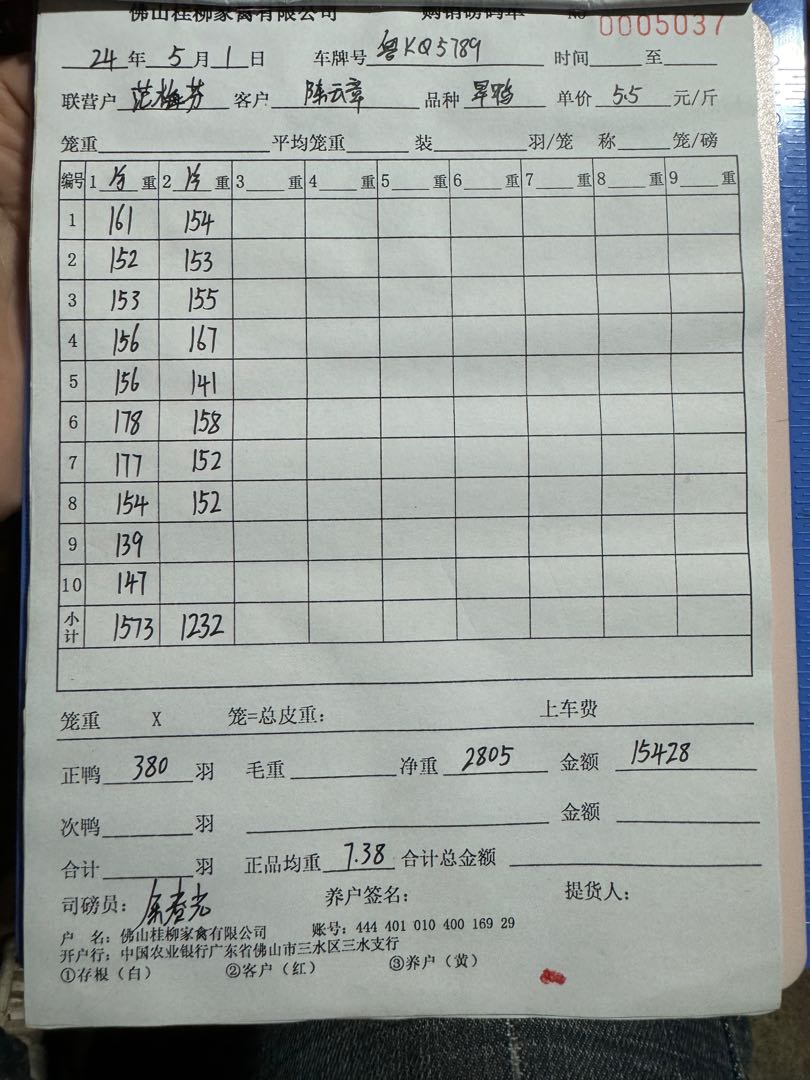 佛山桂柳家禽有限公司 购销磅码单 No 0005037
24 年 5 月 1 日 车牌号 粤KQ5789 时间 至
联营户 范梅芬 客户 陈云章 品种 旱鸭 单价 5.5 元/斤
笼重 平均笼重 装 羽/笼 称 笼/磅
编号 1 重 2 重 3 重 4 重 5 重 6 重 7 重 8 重 9 重
1 161 154
2 152 153
3 153 155
4 156 167
5 156 141
6 178 158
7 177 152
8 154 152
9 139
10 147
小计 1573 1232
笼重 X 笼=总皮重： 上车费
正鸭 380 羽 毛重 净重 2805 金额 15428
次鸭 羽 金额
合计 羽 正品均重 7.38 合计总金额
司磅员： 养户签名： 提货人：
户 名：佛山桂柳家禽有限公司 账号：444 401 010 400 169 29
开户行：中国农业银行广东省佛山市三水区三水支行
①存根（白） ②客户（红） ③养户（黄）